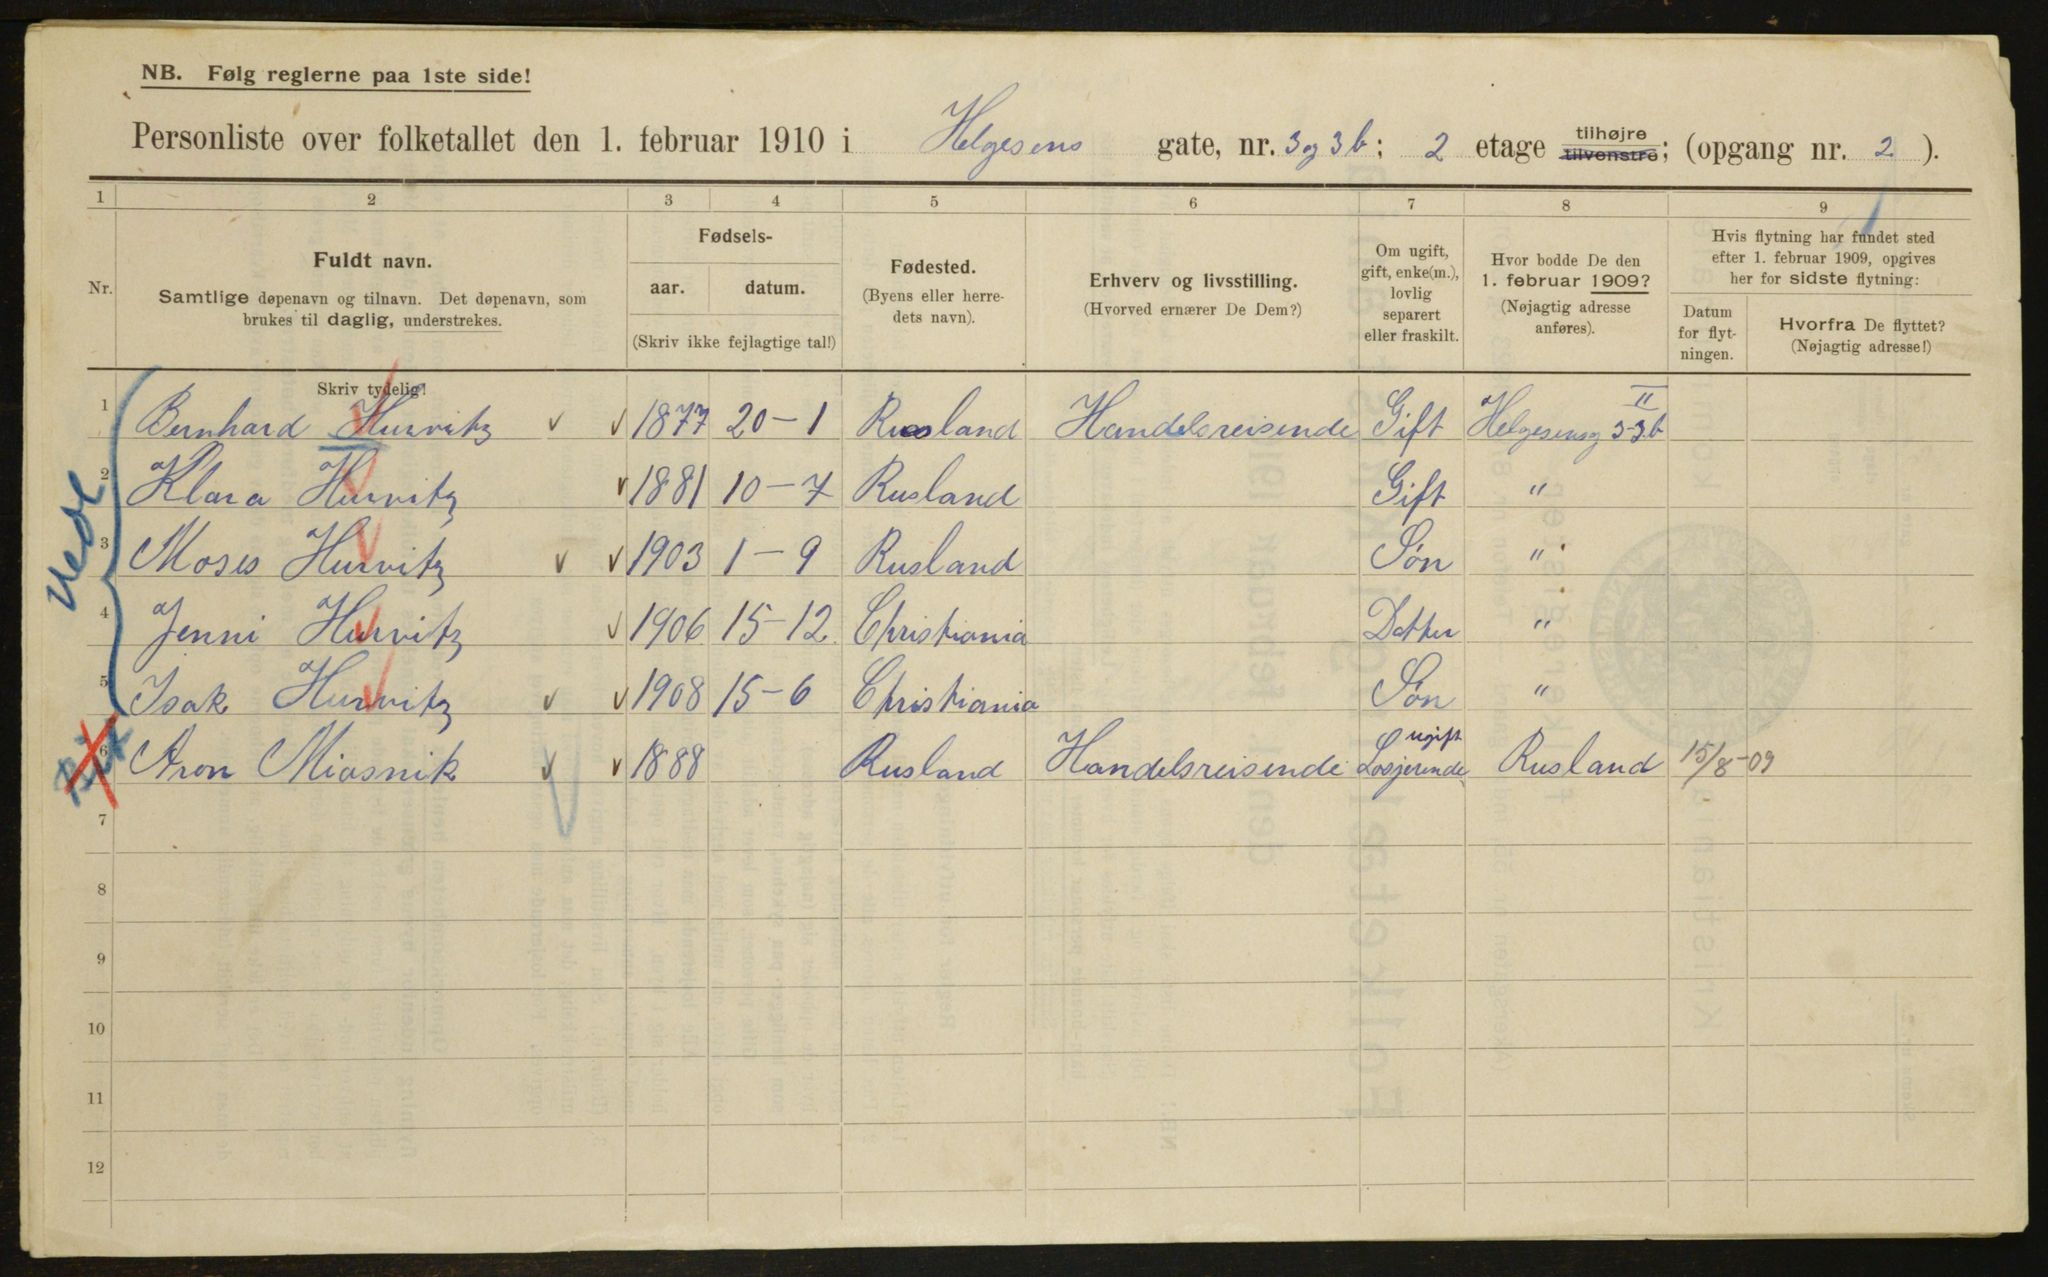 NB. Følg reglerne paa 1ste side!
Personliste over folketallet den 1. februar 1910 i Helgesens gate, nr. 3 og 3b; 2 etage tilhøjre tilvenstre; (opgang nr. 2).
1 2 3 4 5 6 7 8 9
Nr.
Fuldt navn.
Samtlige døpenavn og tilnavn. Det døpenavn, som
brukes til daglig, understrekes.
Skriv tydelig!
Fødsels-
aar. datum.
(Skriv ikke fejlagtige tal!)
Fødested.
(Byens eller herre-
dets navn).
Erhverv og livsstilling.
(Hvorved ernærer De Dem?)
Om ugift,
gift, enke(m.),
lovlig
separert
eller fraskilt.
Hvor bodde De den
1. februar 1909?
(Nøjagtig adresse
anføres).
Hvis flytning har fundet sted
efter 1. februar 1909, opgives
her for sidste flytning:
Datum
for flyt-
ningen.
Hvorfra De flyttet?
(Nøjagtig adresse!)
1 Bernhard Hurvitz 1877 20-1 Rusland Handelsreisende Gift Helgesensg 3-3b II
2 Klara Hurvitz 1881 10-7 Rusland Gift "
3 Moses Hurvitz 1903 1-9 Rusland Søn "
4 Jenni Hurvitz 1906 15-12 Christiania Datter "
5 Isak Hurvitz 1908 15-6 Christiania Søn "
6 Aron Miasnik 1888 Rusland Handelsreisende ugift Losjerende Rusland 15/8-09
7
8
9
10
11
12